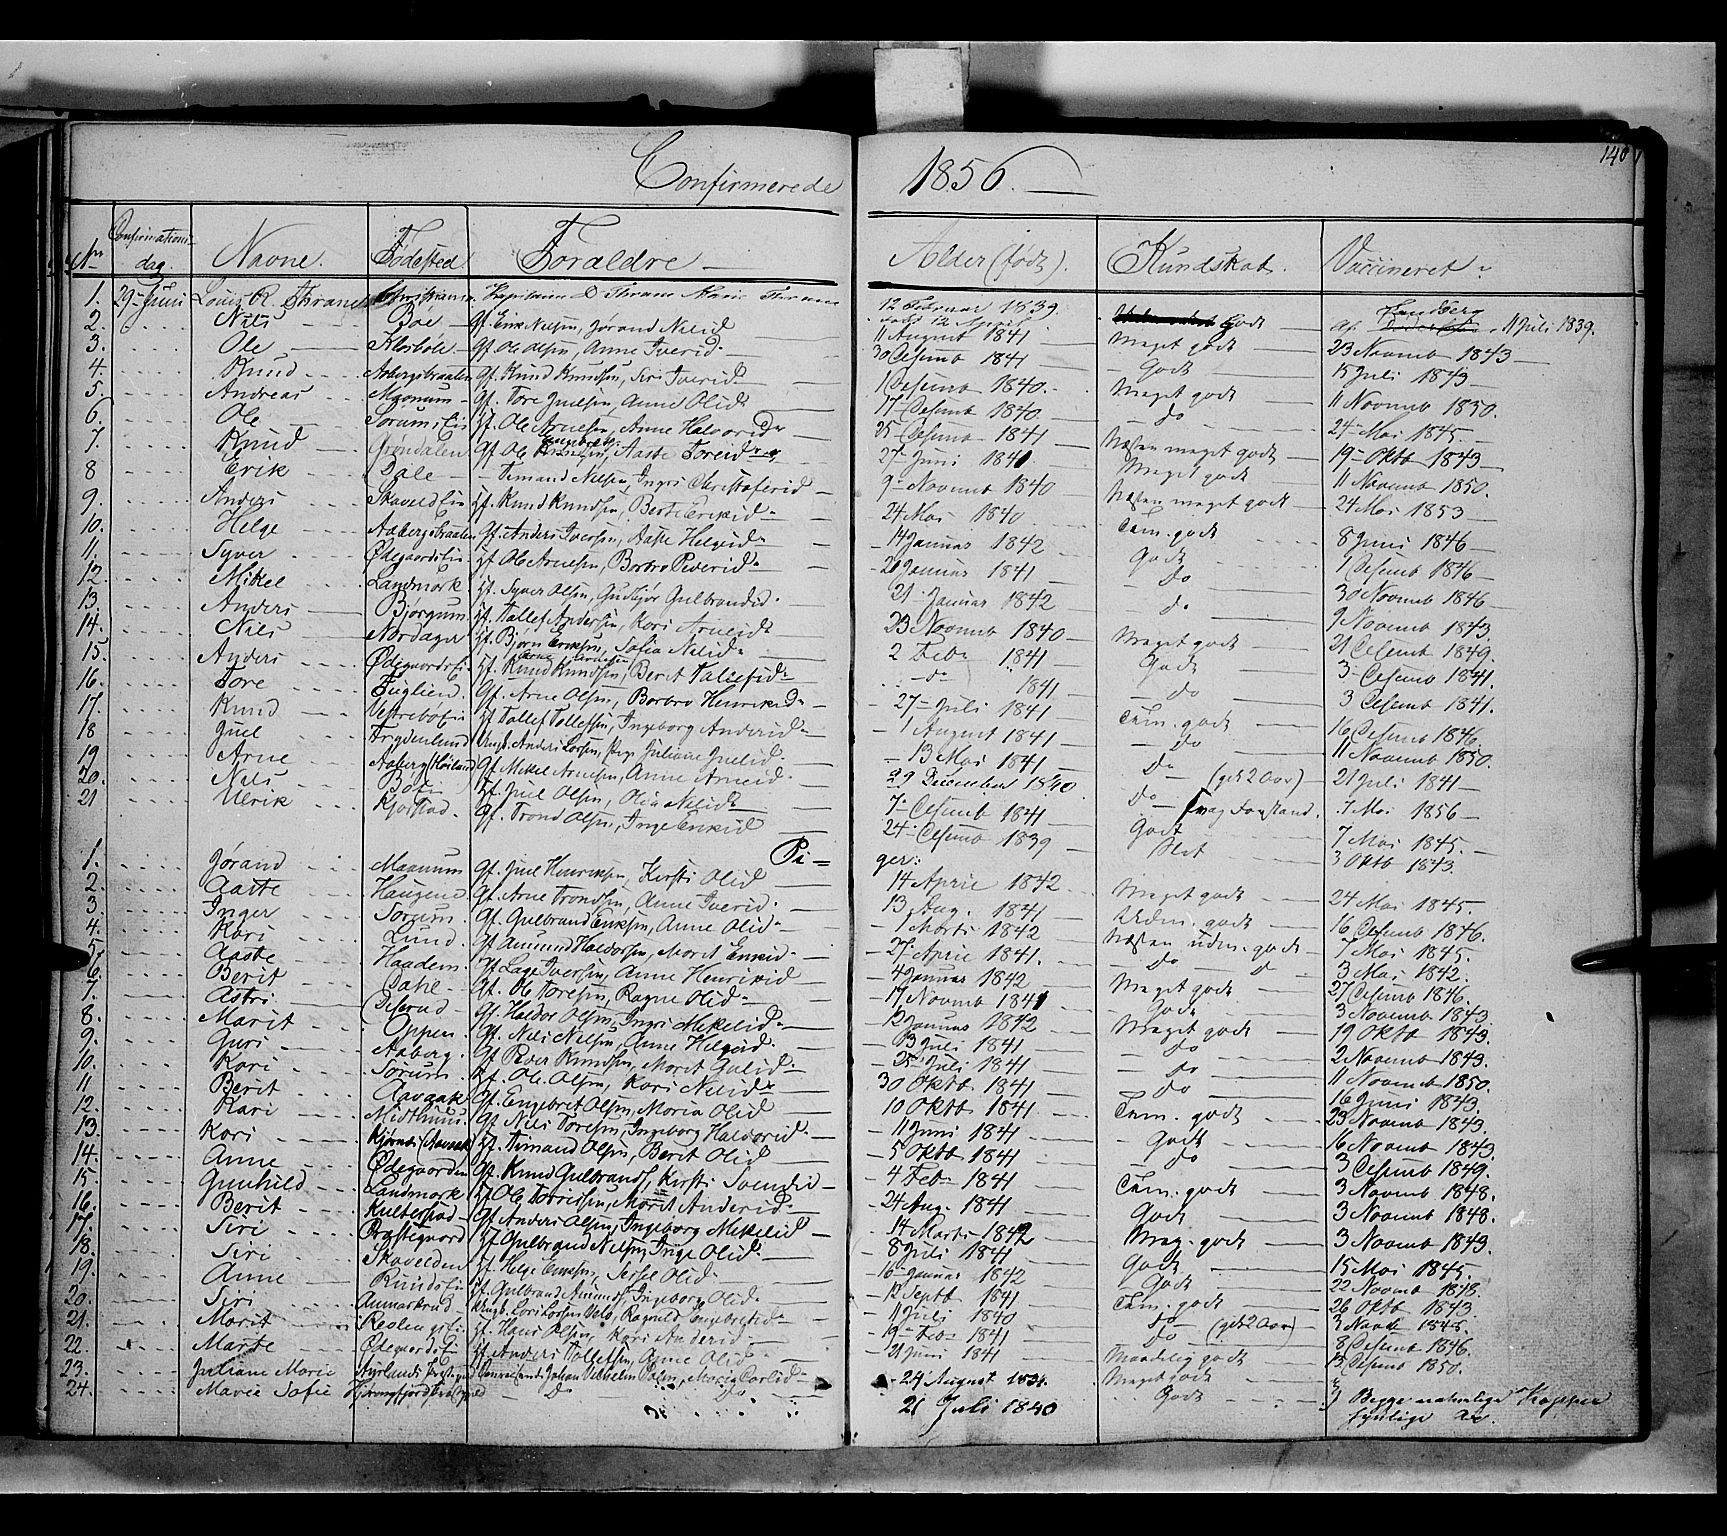 140
Confirmerede 1856.
No Confirmations dag. Navne. Fødested Forældre Alder (født). Kundskab. Vaccineret
1. 29 Juni Louis R. Thrane Christiania Kapitain D Thrane Marie Thrane 12 Februar 1839 Godt af Sandberg 11 Juli 1839.
2. Nils Bøe Gf. Erik Nilsen, Jørand Nilsd 11 August 1841 Meget godt 23 Novemb 1843
3. Ole Gf. Ole Olsen, Anne Iversd 30 Desemb 1841 Godt 15 Juli 1843
4. Knud Aabergsbraaten Gf. Knud Knudsen, Siri Iversd 1 Desemb 1840. Meget godt 11 Novemb 1850.
5. Andreas Moonum Gf. Tore Juelsen, Anne Olsd 17 Desemb 1840 do 24 Mai 1845.
6. Ole Sørums Ei Hf. Ole Arnesen, Anne Halvorsd 25 Desemb 1841 Næsten meget godt 19 Oktb 1843
7. Knud Grøndalen Gf. Ole Engebrets. Aaste Toresd 27 Juni 1841 Meget godt 11 Novemb 1850.
8 Erik Dale Timand Nilsen, Ingri Christofersd 9 Novemb 1840 Næsten meget godt 24 Mai 1853
9. Anders Skoveld Ei Hf. Knud Knudsen, Berit Eriksd 24 Mai 1840 Tem. godt 8 Juni 1846
10. Helge Aabergsbraaten Gf. Anders Iversen, Aaste Helgesd 14 Januar 1842 Godt 1 Desemb 1846
11. Syver Ødegaards Ei Hf. Ole Arnesen, Borbro Pedersd 20 Januar 1841 do 30 Novemb 1846
12. Mikel Landmork Hf. Syver Olsen, Gudbjør Gulbrandsd 21 Januar 1842 do 9 Novemb 1843.
13. Anders Bjørgum Hf. Tollef Andersen, Kari Arnesd 23 Novemb 1840 Meget godt 21 Desemb 1849.
14. Nils Nordager Hf. Bjørn Eriksen, Sofia Nilsd 2 Feb. 1841 Godt 3 Desemb 1841.
15. Anders Ødegaards Ei Hf. Knud Knudsen, Berit 1841 do 3 Desemb 1841.
16. Tore Fuglien. Gf. Arne Olsen, Borbro Henriksd 27 Juli 1841 Tem. godt 16 Desemb 1846
17. Knud Vestrebø Ei Hf. Tollef Tollefsen, Ingeborg Andersd 1 August 1841 do 11 Novemb 1850.
18 Juel Frydenlund Ungk. Anders Larsen, Pige Juliane Juelsd 13 Mai 1841 do (gik 2 Aar) 21 Juli 1841
19 Arne Aaberg (Høiland Gf. Mikel Arnesen, Anne Arnesd 29 December 1840 do Svag Forstand. 7 Mai 1856
20. Nils Hf. Juel Olsen, Olia Nilsd 7 Desemb 1841 Godt 7 Mai 1845.
21 Ulrik Kjøstad. Gf. Trond Olsen, Inge Eriksd 24 Desemb 1839 Slet 3 Oktb 1843.
Piger:
1. Jørand Maanum Gf. Juel Henriksen, Kirsti Olsd 14 April 1842 Meget godt 24 Mai 1845.
2. Aaste Haugene Gf. Arne Trondsen, Anne Iversd 13 Aug. 1841 Udm. godt 16 Desemb 1846.
3. Inger Sørum. Gf. Gulbrand Eriksen, Anne Olsd 1 Marts 1842 Næsten udm. godt 7 Mai 1845.
4. Kari Lund. Gf. Amund Haldorsen, Marit Eriksd 27 April 1841. do do 3 Mai 1842.
5. Aaste Haadem. Hf. Lage Iversen, Anne Henriksd 4 Januar 1842 Meget godt 27 Desemb 1846.
6. Berit Dahl Gf. Ole Toresen, Ragne Olsd 17 Novemb 1841 Godt 3 Novemb 1843
7. Astri Diserud Gf. Haldor Olsen, Ingri Mikelsd 12 Januar 1842 Meget godt 19 Oktb 1843.
8. Marit Oppen Gf. Nils Nilsen, Anne Helgesd 13 Juli 1841 do 2 Novemb 1843.
9. Guri Aaberg. Gf. Peder Knudsen, Marit Golsd 25 Juli 1841 do 11 Novemb 1850.
10. Kari Sørum. Hf. Ole Olsen, Kari Nilsd 30 Oktb 1841 do 16 Juni 1843.
11 Berit Aavaak Gf. Engebret Olsen, Maria Olsd 10 Oktb 1841 Tem. godt 23 Novemb 1843.
12. Kari Midthuus Gf. Nils Toresen, Ingeborg Haldorsd 11 Juni 1841 Godt 16 Novemb 1843.
13. Kari Hf. Timand Olsen, Berit Olsd 5 Oktb 1841 do 3 Desemb 1849.
14. Anne Ødegaarden Gf. Knud Gulbrands., Kirsti Svendsd 4 Feb. 1841 Tem. godt 3 Novemb 1848.
15 Gunhild Landmork Hf. Ole Torrissen, Marit Andersd 24 Aug. 1841 Godt 3 Novemb 1848.
16. Berit Kultestad Gf. Anders Olsen, Ingeborg Mikelsd 14 Marts 1842 Meg. godt 3 Novemb 1843.
17. Siri Præstegaard Hf. Gulbrand Nilsen, Inge Olsd 8 Juli 1841 Godt 15 Mai 1845.
18. Siri Skovelden Hf. Helge Eriksen, Sessel Olsd 16 Januar 1842 Godt 22 Novemb 1848.
19. Anne Runds Ei Hf. Gulbrand Amunds. Ingeborg Olsd 12 Septb 1841 Tem. godt 26 Oktb 1843
20. Siri Aunaskrud Ungk. Lars Larsen Vold, Ragnild Engebretsd 11 Juli 1840 do (gik 2 Aar) 3 Novb 1845.
21. Marit Reolengs Ei Hf. Hans Olsen, Kari Andersd 19 Feb. 1841 do 8 Desemb 1846.
22. Marte Ødegaards Ei Hf. Anders Tollefsen, Anne Olsd 21 Juni 1841 Maadelig godt 13 Desemb 1850.
23. Juliane Marie Johan Vilhelm Marie Carlsd 24 August 1834. Meget godt
24. Marie Sofie do do 21 Juli 1840 Godt Begge naturlige Kopper synlige Ar.